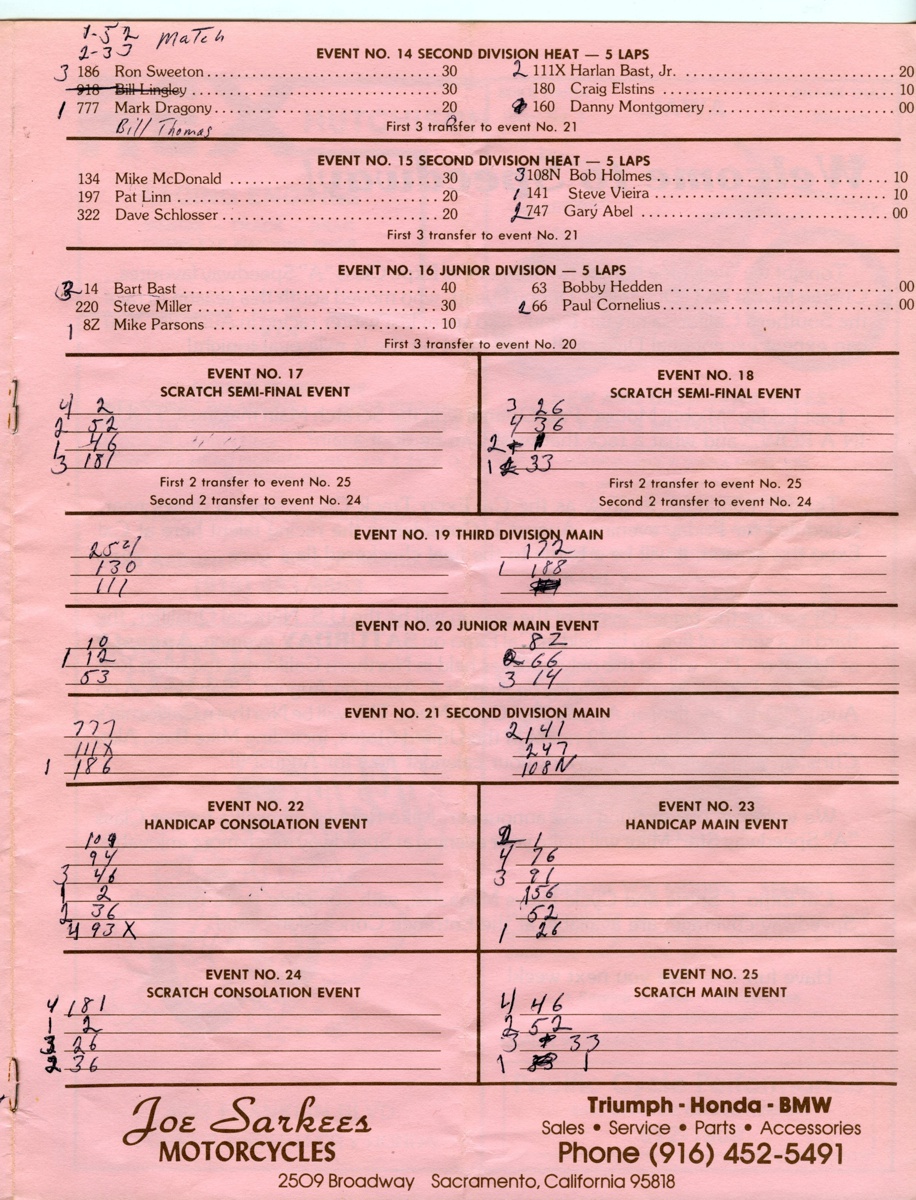 1-52 Match
2-33
EVENT NO. 14 SECOND DIVISION HEAT — 5 LAPS
3 186 Ron Sweeton 30
918 Bill Lingley 30
1 777 Mark Dragony 20
Bill Thomas
2 111X Harlan Bast, Jr. 20
180 Craig Elstins 10
160 Danny Montgomery 00
First 3 transfer to event No. 21
EVENT NO. 15 SECOND DIVISION HEAT — 5 LAPS
134 Mike McDonald 30
197 Pat Linn 20
322 Dave Schlosser 20
3 108N Bob Holmes 10
1 141 Steve Vieira 10
2 747 Gary Abel 00
First 3 transfer to event No. 21
EVENT NO. 16 JUNIOR DIVISION — 5 LAPS
3 14 Bart Bast 40
220 Steve Miller 30
1 8Z Mike Parsons 10
63 Bobby Hedden 00
2 66 Paul Cornelius 00
First 3 transfer to event No. 20
EVENT NO. 17
SCRATCH SEMI-FINAL EVENT
4 2
2 52
1 46
3 181
First 2 transfer to event No. 25
Second 2 transfer to event No. 24
EVENT NO. 18
SCRATCH SEMI-FINAL EVENT
3 26
4 36
2 1
1 33
First 2 transfer to event No. 25
Second 2 transfer to event No. 24
EVENT NO. 19 THIRD DIVISION MAIN
130
111
172
1 188
EVENT NO. 20 JUNIOR MAIN EVENT
10
1 12
53
8Z
2 66
3 14
EVENT NO. 21 SECOND DIVISION MAIN
777
111X
1 186
2 141
247
108N
EVENT NO. 22
HANDICAP CONSOLATION EVENT
109
94
3 46
1 2
2 36
4 93X
EVENT NO. 23
HANDICAP MAIN EVENT
2 1
4 76
3 91
156
52
1 26
EVENT NO. 24
SCRATCH CONSOLATION EVENT
4 181
1 2
3 26
2 36
EVENT NO. 25
SCRATCH MAIN EVENT
4 46
2 52
3 33
1 1
Joe Sarkees
MOTORCYCLES
Triumph - Honda - BMW
Sales • Service • Parts • Accessories
Phone (916) 452-5491
2509 Broadway Sacramento, California 95818